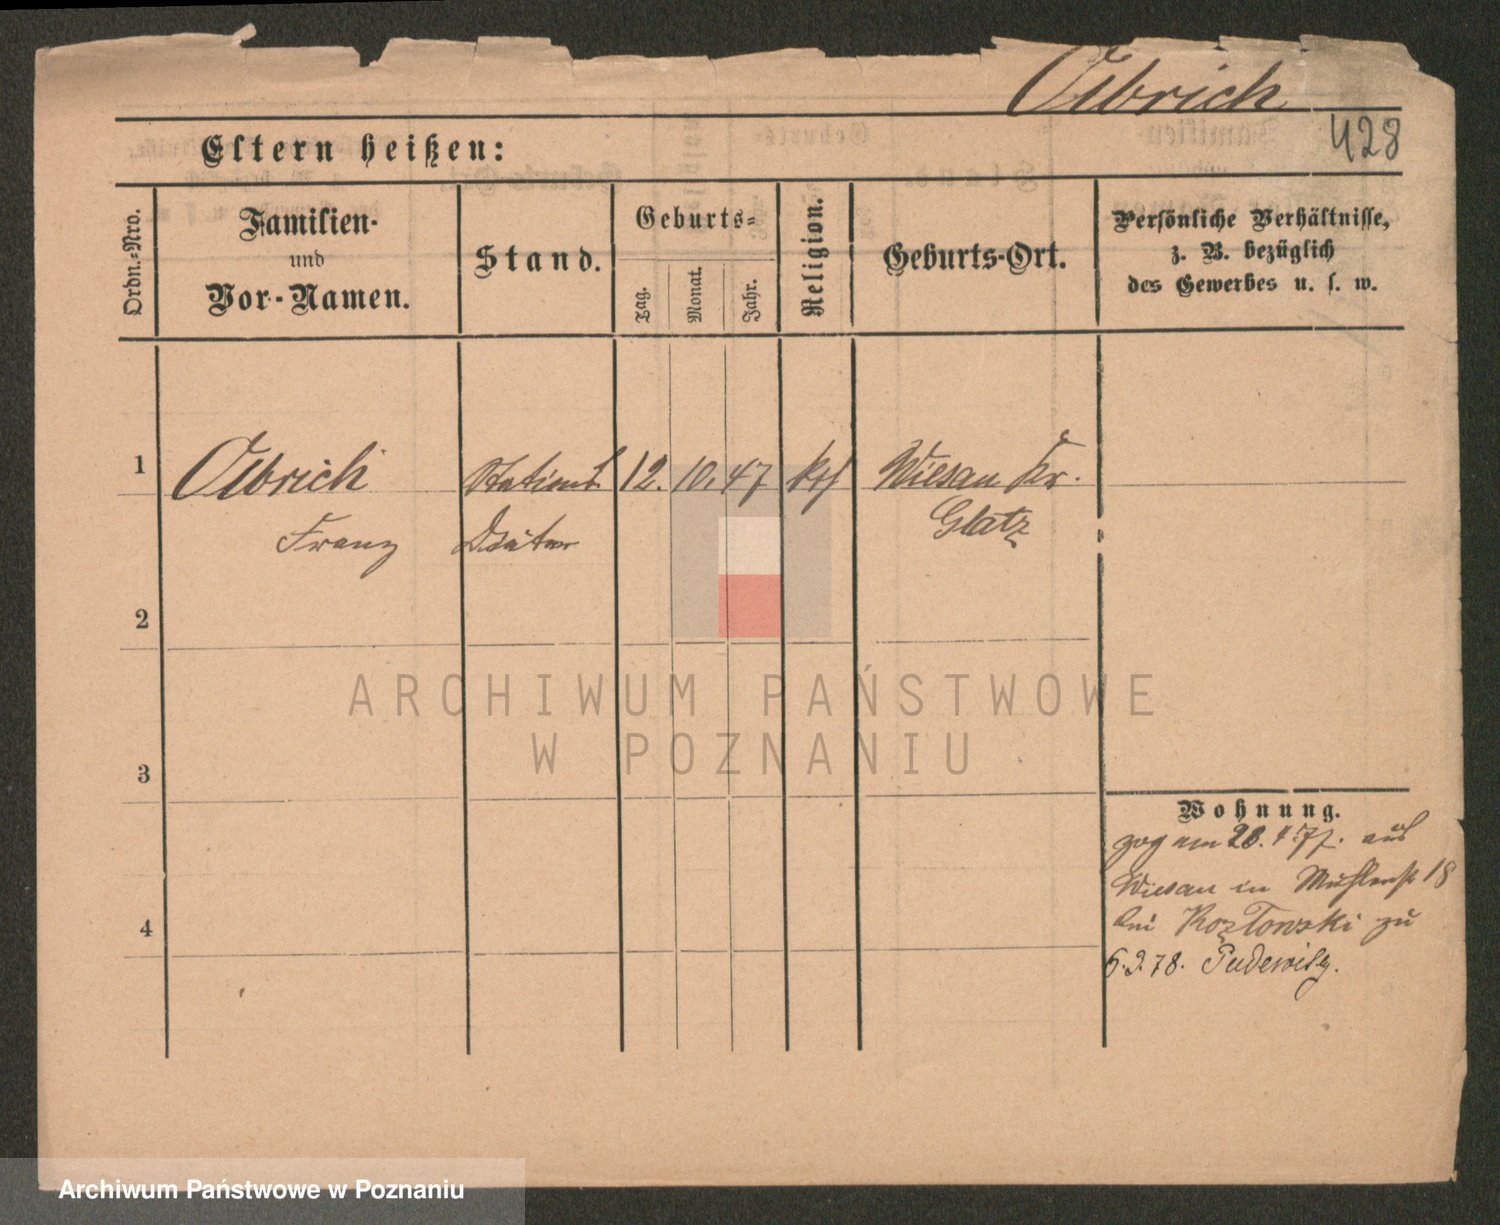 Olbrich
428
Eltern heißen:
Ordn.-Nro.
Familien-
und
Vor-Namen.
Stand.
Geburts-
Tag.
Monat.
Jahr.
Religion.
Geburts-Ort.
Persönliche Verhältnisse,
z. B. bezüglich
des Gewerbes u. s. w.
1
Olbrich
Stations 12. 10. 47 kth Wiesau Kr.
Glatz
Franz
Diätar
2
ARCHIWUM PAŃSTWOWE
W POZNANIU
3
Wohnung.
zog am 28. 4. 77. aus
Wiesau in Mühlenst 18
bei Kozłowski zu
4
6. 9. 78. Pudewitz.
Archiwum Państwowe w Poznaniu